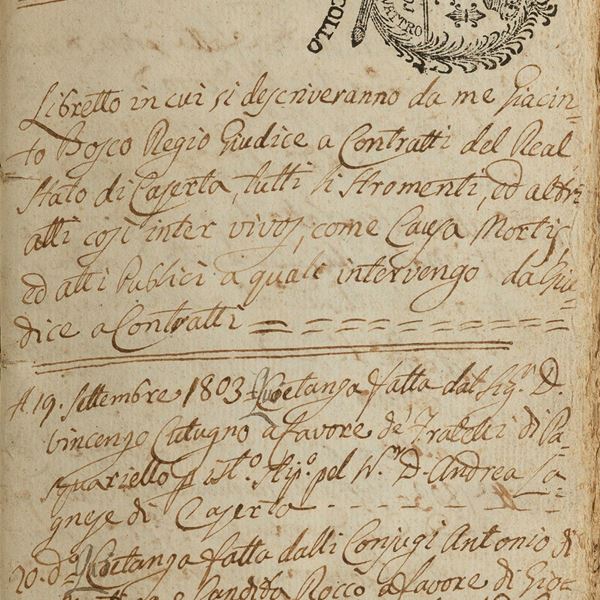 QUATTRO
Libretto in cui si descriveranno da me Giacin-
to Bosco Regio Giudice a Contratti del Real
Stato di Caserta, tutti li stromenti, ed altri
atti così inter vivos, come Causa Mortis,
ed atti Publici a quali intervengo da Giu-
dice a Contratti
A 19. Settembre 1803 Quietanza fatta dal Sig.r D.
Vincenzo Cutugno a favore de' Fratelli di Pa-
squariello p pel D. Andrea La-
gnese di Caserta
20. d.o Quietanza fatta dalli Conjugi Antonio di
Candida Rocco a favore di Gio-